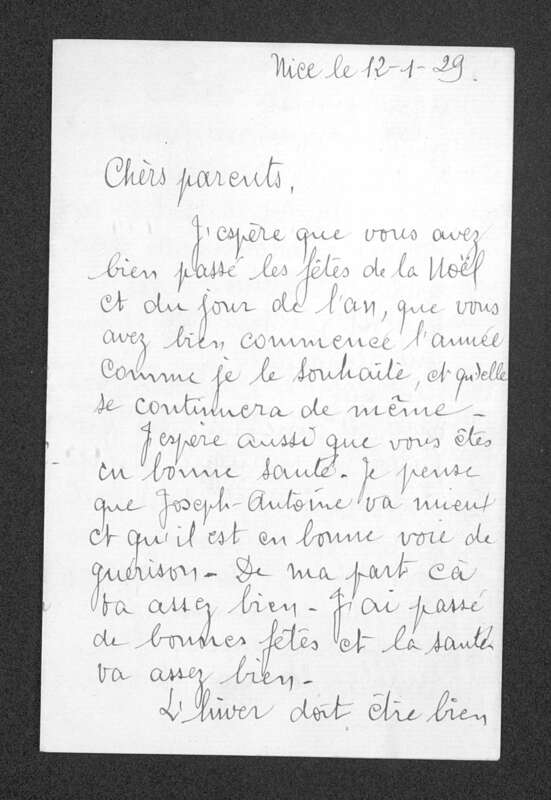 Nice le 12-1-29.
Chèrs parents,
J'espère que vous avez
bien passé les fêtes de la Noël
et du jour de l'an, que vous
avez bien commencé l'année
comme je le souhaite, et qu'elle
se continuera de même -
J'espère aussi que vous êtes
en bonne santé - Je pense
que Joseph-Antoine va mieux
et qu'il est en bonne voie de
guérison - De ma part cà
va assez bien - J'ai passé
de bonnes fêtes et la santé
va assez bien -
L'hiver doit être bien